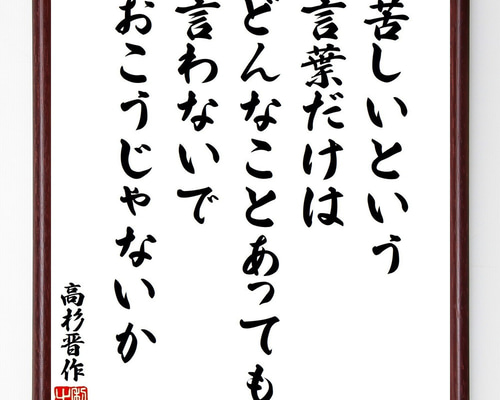 苦しいという
言葉だけは
どんなことあっても
言わないで
おこうじゃないか
高杉晋作